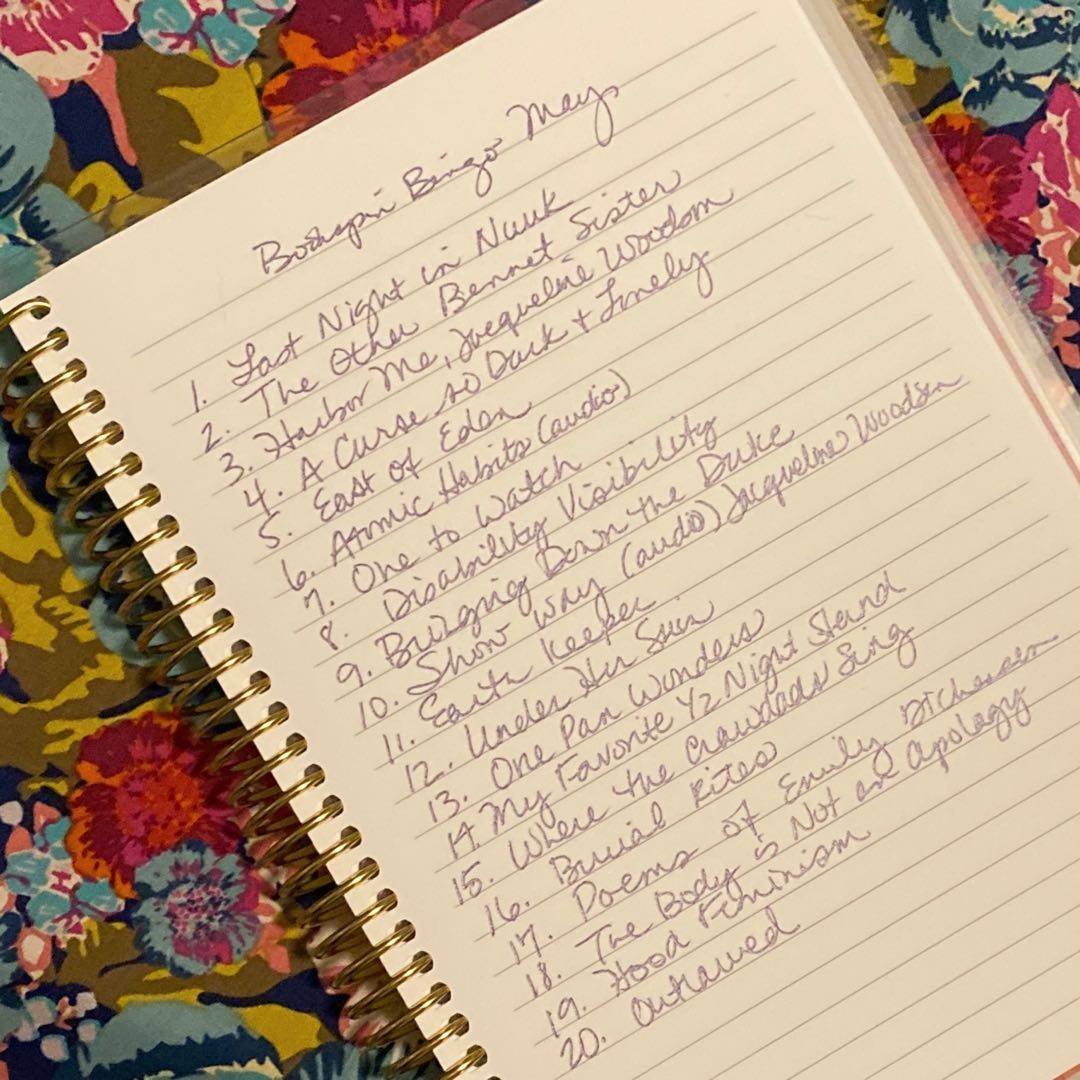 Bookspin Bingo May
1. Last Night in Nuuk
2. The Other Bennet Sister
3. Harbor Me, Jacqueline Woodson
4. A Curse so Dark + Lonely
5. East of Eden
6. Atomic Habits (audio)
7. One to Watch
8. Disability Visibility
9. Bringing Down the Duke
10. Show Way (audio) Jacqueline Woodson
11. Earth Keeper
12. Under Her Skin
13. One Pan Wonders
14. My Favorite 1/2 Night Stand
15. Where the Crawdads Sing
16. Burial Rites
17. Poems of Emily Dickenson
18. The Body is Not an Apology
19. Hood Feminism
20. Outlawed